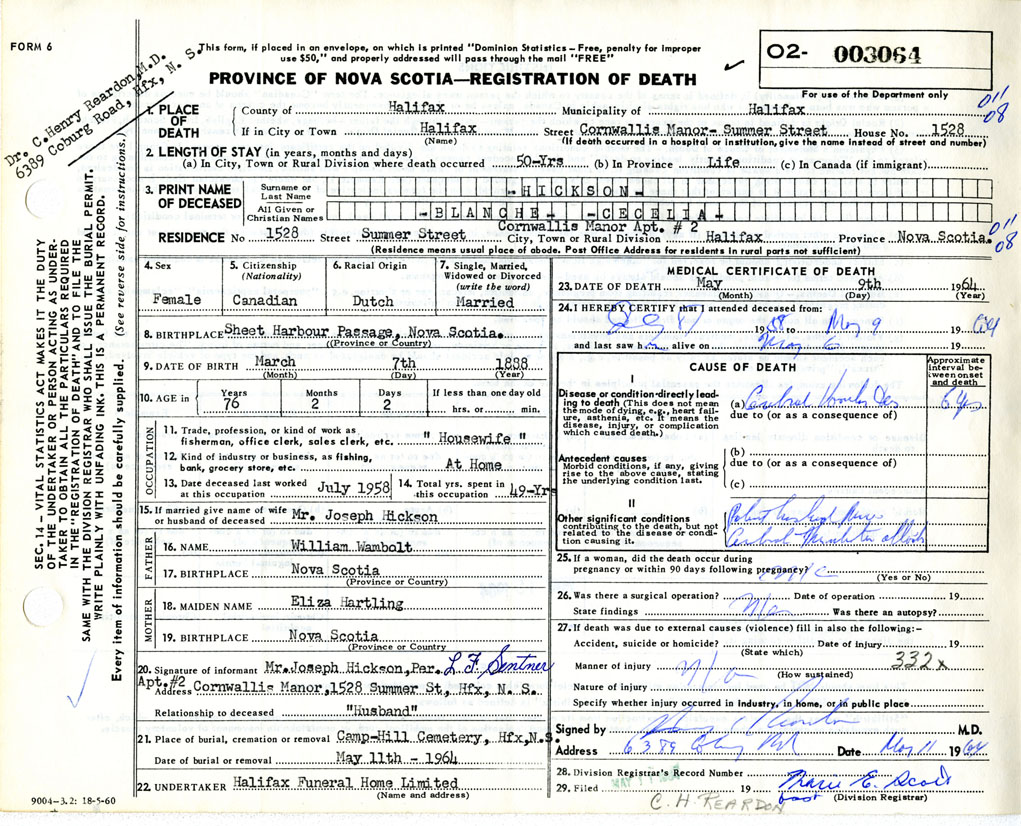 FORM 6
This form, if placed in an envelope, on which is printed "Dominion Statistics – Free, penalty for improper
use $50," and properly addressed will pass through the mail "FREE"
PROVINCE OF NOVA SCOTIA—REGISTRATION OF DEATH
O2- 003064
For use of the Department only
Dr. C. Henry Reardon, M.D.
6389 Coburg Road, Hfx, N. S.
SEC. 14 – VITAL STATISTICS ACT MAKES IT THE DUTY
OF THE UNDERTAKER OR PERSON ACTING AS UNDER-
TAKER TO OBTAIN ALL THE PARTICULARS REQUIRED
IN THE "REGISTRATION OF DEATH" AND TO FILE THE
SAME WITH THE DIVISION REGISTRAR WHO SHALL ISSUE THE BURIAL PERMIT.
WRITE PLAINLY WITH UNFADING INK. THIS IS A PERMANENT RECORD.
Every item of information should be carefully supplied. (See reverse side for instructions.)
1. PLACE OF DEATH
County of Halifax Municipality of Halifax
011
08
If in City or Town Halifax Street Cornwallis Manor- Summer Street House No. 1528
(Name) (If death occurred in a hospital or institution, give the name instead of street and number)
2. LENGTH OF STAY (in years, months and days)
(a) In City, Town or Rural Division where death occurred 50-Yrs (b) In Province Life (c) In Canada (if immigrant)
3. PRINT NAME OF DECEASED
Surname or Last Name -HICKSON-
All Given or Christian Names -BLANCHE- -CECELIA-
Cornwallis Manor Apt. # 2
RESIDENCE No 1528 Street Summer Street City, Town or Rural Division Halifax Province Nova Scotia.
011
08
(Residence means usual place of abode. Post Office Address for residents in rural parts not sufficient)
4. Sex
Female
5. Citizenship
(Nationality)
Canadian
6. Racial Origin
Dutch
7. Single, Married,
Widowed or Divorced
(write the word)
Married
8. BIRTHPLACE Sheet Harbour Passage, Nova Scotia.
(Province or Country)
9. DATE OF BIRTH March 7th 1888
(Month) (Day) (Year)
10. AGE in Years Months Days If less than one day old
76 2 2 hrs. or min.
OCCUPATION
11. Trade, profession, or kind of work as
fisherman, office clerk, sales clerk, etc. " Housewife "
12. Kind of industry or business, as fishing,
bank, grocery store, etc. At Home
13. Date deceased last worked
at this occupation July 1958
14. Total yrs. spent in
this occupation 49-Yrs
15. If married give name of wife
or husband of deceased Mr. Joseph Hickson
FATHER
16. NAME William Wambolt
17. BIRTHPLACE Nova Scotia
(Province or Country)
MOTHER
18. MAIDEN NAME Eliza Hartling
19. BIRTHPLACE Nova Scotia
(Province or Country)
20. Signature of informant Mr. Joseph Hickson, Per. L. F. Sentner
Apt.#2
Address Cornwallis Manor, 1528 Summer St, Hfx, N. S.
Relationship to deceased "Husband"
21. Place of burial, cremation or removal Camp-Hill Cemetery, Hfx, N.S.
Date of burial or removal May 11th - 1964
22. UNDERTAKER Halifax Funeral Home Limited
(Name and address)
9004–3.2: 18-5-60
MEDICAL CERTIFICATE OF DEATH
23. DATE OF DEATH May 9th 1964
(Month) (Day) (Year)
24. I HEREBY CERTIFY that I attended deceased from:
1958 to May 9 19 64
and last saw h alive on May 19
CAUSE OF DEATH
Approximate
interval be-
tween onset
and death
I
Disease or condition directly lead-
ing to death (This does not mean
the mode of dying, e.g., heart fail-
ure, asthenia, etc. It means the
disease, injury, or complication
which caused death.)
(a) Cerebral 6 yrs
due to (or as a consequence of)
Antecedent causes
Morbid conditions, if any, giving
rise to the above cause, stating
the underlying condition last.
(b)
due to (or as a consequence of)
(c)
II
Other significant conditions
contributing to the death, but not
related to the disease or condi-
tion causing it.
Cerebral
25. If a woman, did the death occur during
pregnancy or within 90 days following pregnancy?
(Yes or No)
26. Was there a surgical operation? No Date of operation 19
State findings Was there an autopsy?
27. If death was due to external causes (violence) fill in also the following:–
Accident, suicide or homicide? Date of injury 19
(State which) 332x
Manner of injury
(How sustained)
Nature of injury
Specify whether injury occurred in industry, in home, or in public place
Signed by M.D.
Address 6389 Coburg Rd Date May 11 1964
28. Division Registrar's Record Number
29. Filed 19
(Division Registrar)
C. H. REARDON